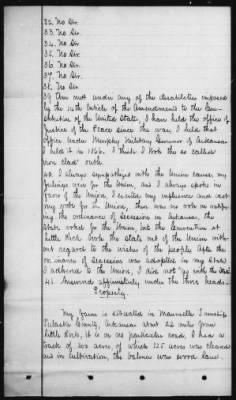 32. No Sir.
33. No Sir.
34. No Sir.
35. No Sir.
36. No Sir.
37. No Sir.
38. No Sir.
39. Am not under any of the disabilities imposed
by the 14th Article of the Amendments to the Con-
stitution of the United States, I have held the office of
Justice of the Peace since the war, I held that
office under Murphy Military Governor of Arkansas
I held it in 1864. I think I took the so called
iron clad oath.
40. I always sympathized with the Union cause, my
feelings were for the Union, and I always spoke in
favor of the Union, I exerted my influence and cast
my vote for the Union, there was no vote on ratify-
ing the ordinance of Secession in Arkansas, the
State voted for the Union, but the Convention at
Little Rock took the State out of the Union with-
out regard to the wishes of the people, After the
ordinance of Secession was adopted in my State
I adhered to the Union, I did not "go with the State"
41. Answered affirmatively under the three heads-
Property.
My farm is situated in Maumelle Township
Pulaski County, Arkansas about 25 miles from
Little Rock, it is on no particular road, I have a
track of acres, of which 125 acres was cleared
and in cultivation, the balance was wood land.